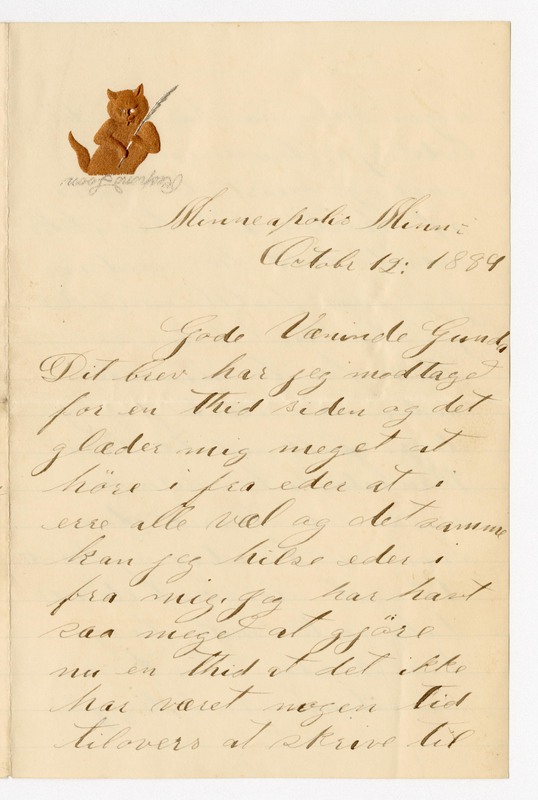 Minneapolis Minn:
Octobr 12: 1884
Gode Væninde Gunda
Dit brev har jeg modtaget
for en thid siden og det
glæder mig meget at
höre i fra eder at i
erre alle væl og det samme
kan jeg hilse eder i
fra mig. jeg har havt
saa meget at gjöre
nu en thid at det ikke
har været nogen tid
tilovers at skrive til